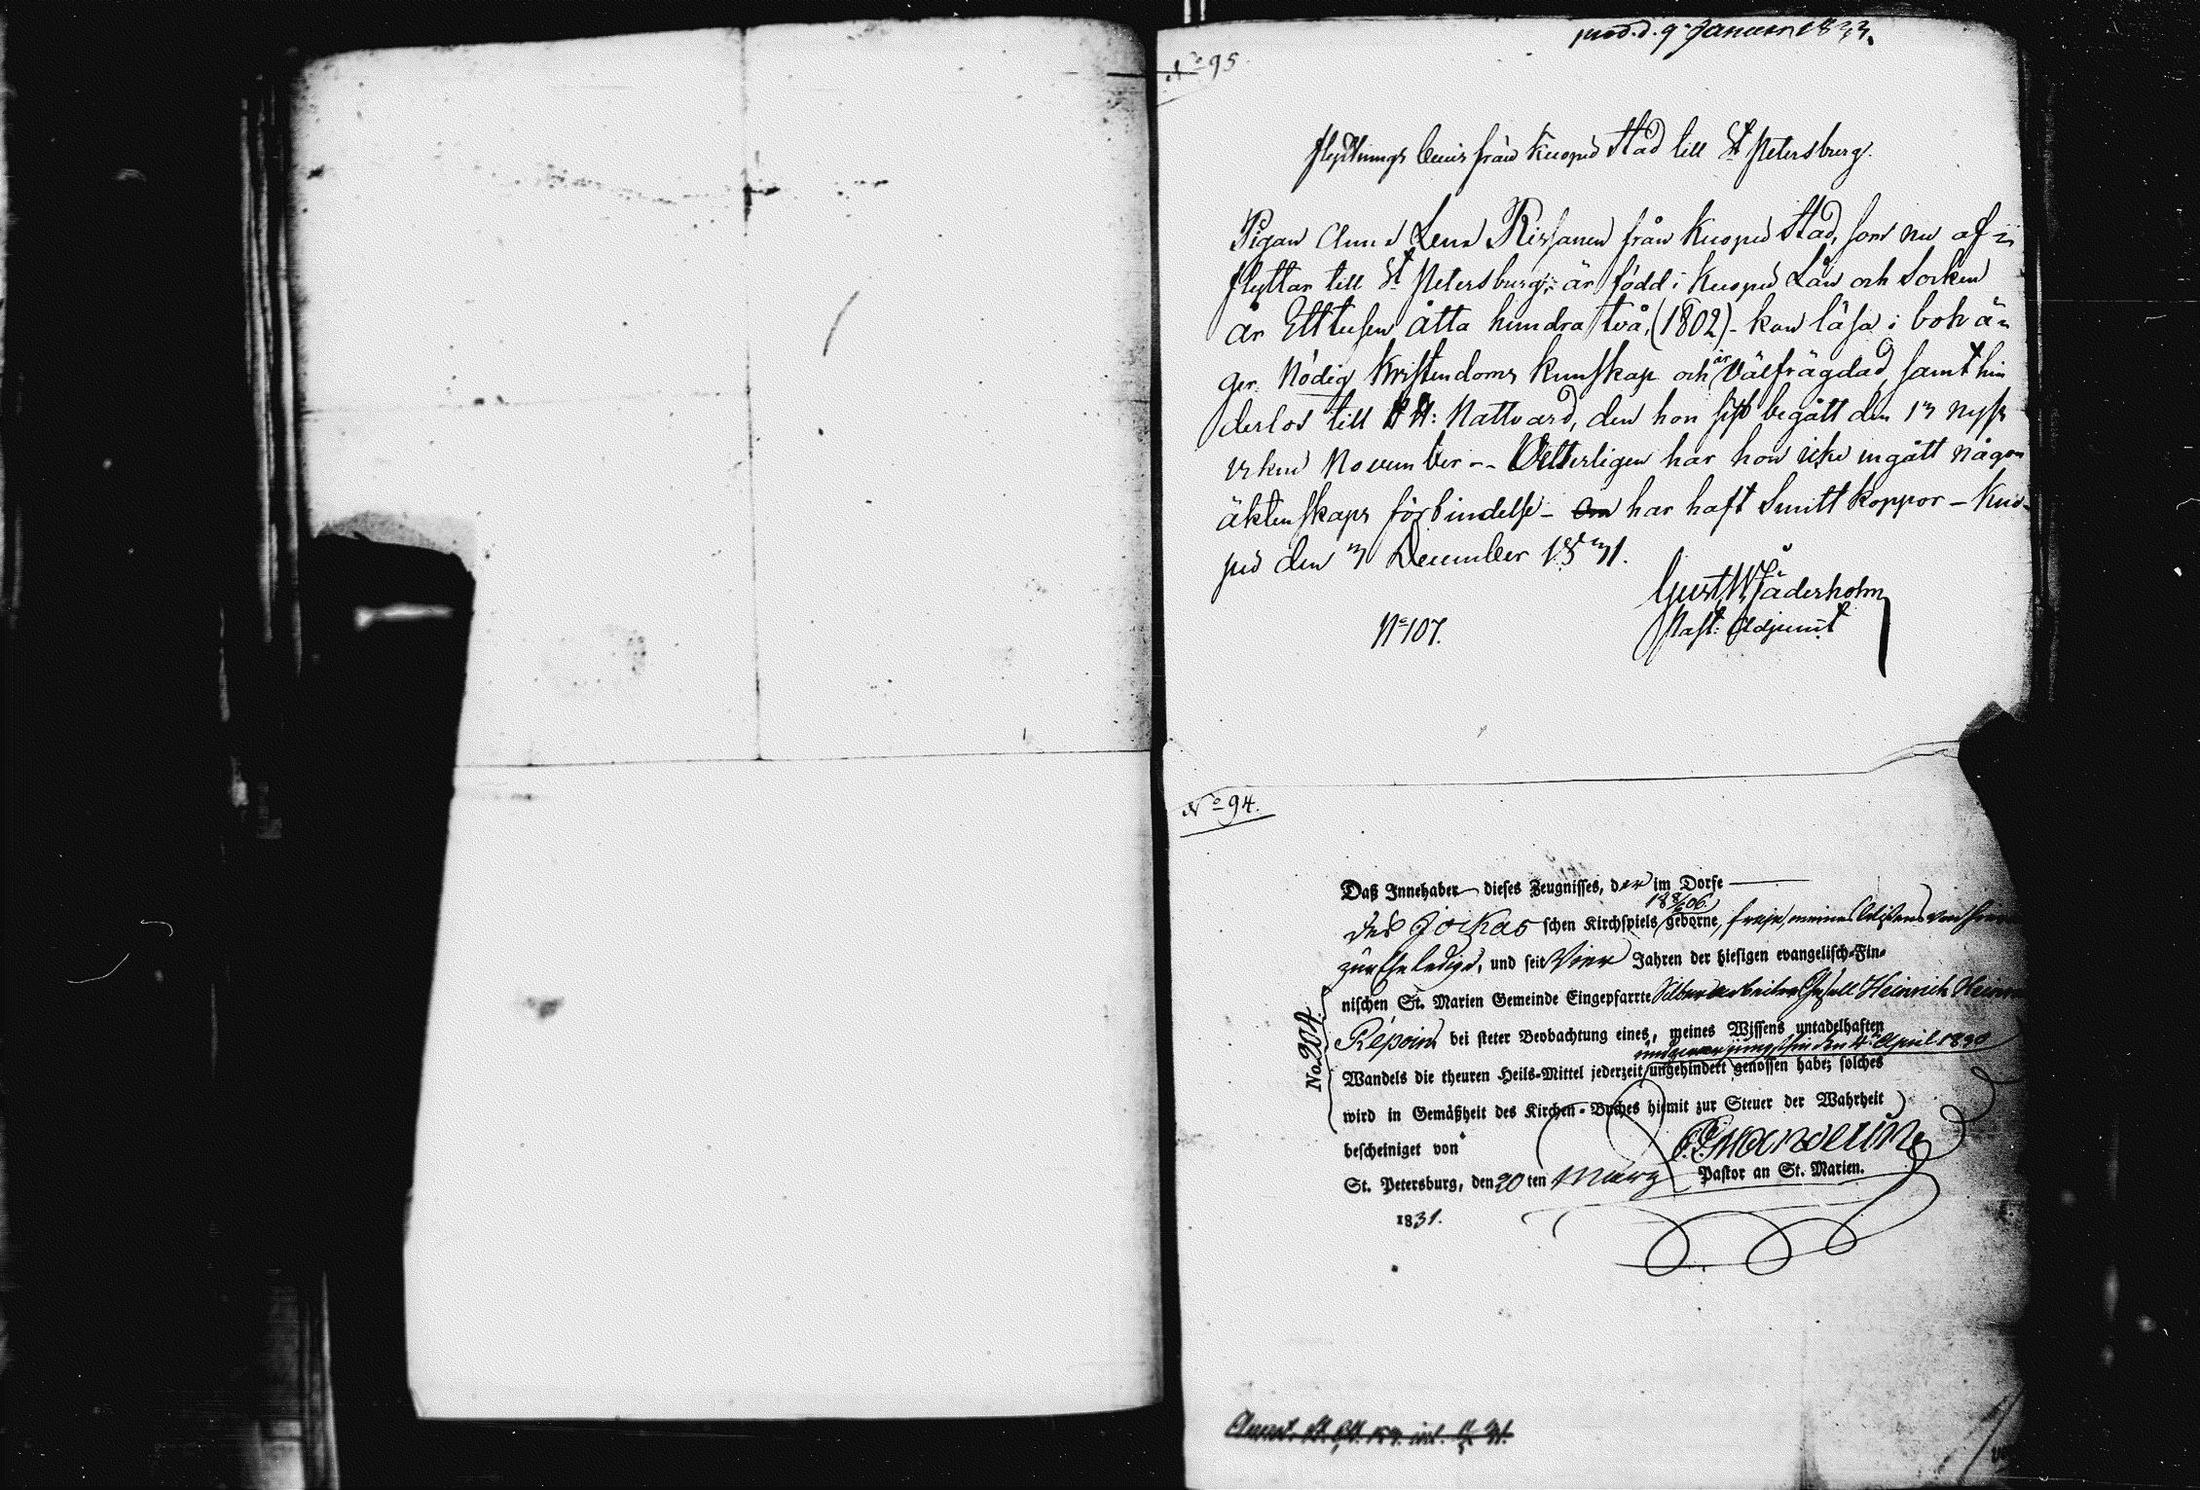 prod. d. 9 Januari 1833.
No 95.
flyttnings bevis från Kuopio Stad till St Petersburg.
Pigan Anna Lena Rissanen från Kuopio Stad, som nu af-
flyttar till St Petersburg, är född i Kuopio Län och Socken
år Ett tusen åtta hundra två, (1802) - kan läsa i bok ä-
ger Nödig Kristendoms kunskap och är välfrägdad, samt hin
derlos till H H: Nattvard, den hon sist begått den 13 nyss
November -- Vetterligen har hon icke ingått någon
äktenskaps förbindelse - har haft Smittkoppor - Kuo-
pio den 3 December 1831.
Gust W Fäderholm
No 107.
Past: Adjunct
No 94.
Daß Innehaber dieses Zeugnisses, der im Dorfe
des Jockas schen Kirchspiels geborne, freie, meines Wissens
zur Ehe ledige, und seit Vier Jahren der hiesigen evangelisch-Fin-
nischen St. Marien Gemeinde Eingepfarrte Silberarbeiter Gesell Heinrich
Repoin bei steter Beobachtung eines, meines Wissens untadelhaften
den 4 April 1830
Wandels die theuren Heils-Mittel jederzeit ungehindert genossen habe; solches
No. 204.
wird in Gemäßheit des Kirchen-Buches hiemit zur Steuer der Wahrheit
bescheiniget von
St. Petersburg, den 20 ten März Pastor an St. Marien.
1831.